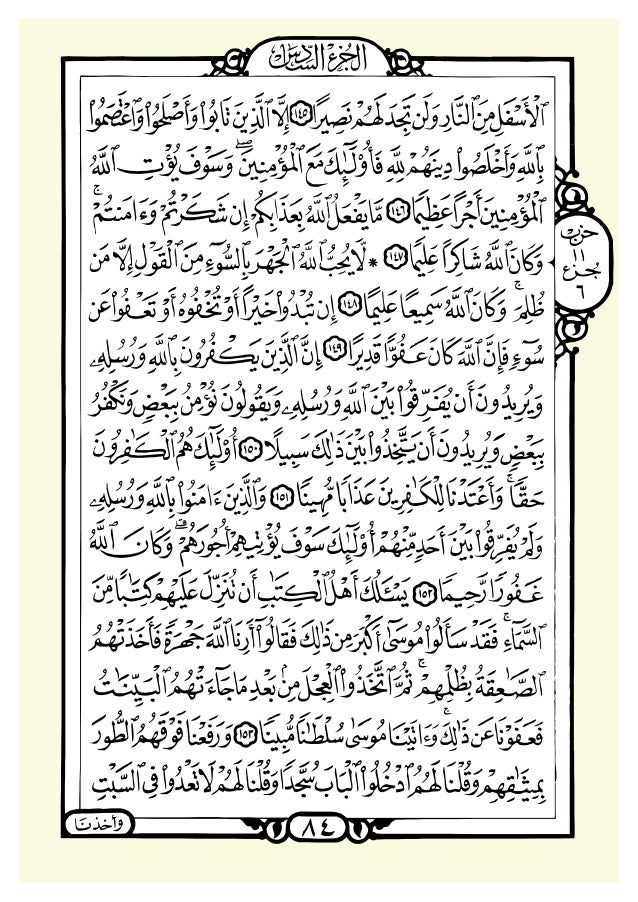 الجزء السادس
ٱلۡأَسۡفَلِ مِنَ ٱلنَّارِ وَلَن تَجِدَ لَهُمۡ نَصِيرًا ١٤٥ إِلَّا ٱلَّذِينَ تَابُوا۟ وَأَصۡلَحُوا۟ وَٱعۡتَصَمُوا۟
بِٱللَّهِ وَأَخۡلَصُوا۟ دِينَهُمۡ لِلَّهِ فَأُو۟لَٰٓئِكَ مَعَ ٱلۡمُؤۡمِنِينَۖ وَسَوۡفَ يُؤۡتِ ٱللَّهُ
ٱلۡمُؤۡمِنِينَ أَجۡرًا عَظِيمًا ١٤٦ مَّا يَفۡعَلُ ٱللَّهُ بِعَذَابِكُمۡ إِن شَكَرۡتُمۡ وَءَامَنتُمۡۚ
وَكَانَ ٱللَّهُ شَاكِرًا عَلِيمًا ١٤٧ * لَّا يُحِبُّ ٱللَّهُ ٱلۡجَهۡرَ بِٱلسُّوٓءِ مِنَ ٱلۡقَوۡلِ إِلَّا مَن
حزب
١١
جزء
٦
ظُلِمَۚ وَكَانَ ٱللَّهُ سَمِيعًا عَلِيمًا ١٤٨ إِن تُبۡدُوا۟ خَيۡرًا أَوۡ تُخۡفُوهُ أَوۡ تَعۡفُوا۟ عَن
سُوٓءٍ فَإِنَّ ٱللَّهَ كَانَ عَفُوًّا قَدِيرًا ١٤٩ إِنَّ ٱلَّذِينَ يَكۡفُرُونَ بِٱللَّهِ وَرُسُلِهِۦ
وَيُرِيدُونَ أَن يُفَرِّقُوا۟ بَيۡنَ ٱللَّهِ وَرُسُلِهِۦ وَيَقُولُونَ نُؤۡمِنُ بِبَعۡضٍ وَنَكۡفُرُ
بِبَعۡضٍ وَيُرِيدُونَ أَن يَتَّخِذُوا۟ بَيۡنَ ذَٰلِكَ سَبِيلًا ١٥٠ أُو۟لَٰٓئِكَ هُمُ ٱلۡكَٰفِرُونَ
حَقًّاۚ وَأَعۡتَدۡنَا لِلۡكَٰفِرِينَ عَذَابًا مُّهِينًا ١٥١ وَٱلَّذِينَ ءَامَنُوا۟ بِٱللَّهِ وَرُسُلِهِۦ
وَلَمۡ يُفَرِّقُوا۟ بَيۡنَ أَحَدٍ مِّنۡهُمۡ أُو۟لَٰٓئِكَ سَوۡفَ يُؤۡتِيهِمۡ أُجُورَهُمۡۗ وَكَانَ ٱللَّهُ
غَفُورًا رَّحِيمًا ١٥٢ يَسۡـَٔلُكَ أَهۡلُ ٱلۡكِتَٰبِ أَن تُنَزِّلَ عَلَيۡهِمۡ كِتَٰبًا مِّنَ
ٱلسَّمَآءِۚ فَقَدۡ سَأَلُوا۟ مُوسَىٰٓ أَكۡبَرَ مِن ذَٰلِكَ فَقَالُوٓا۟ أَرِنَا ٱللَّهَ جَهۡرَةً فَأَخَذَتۡهُمُ
ٱلصَّٰعِقَةُ بِظُلۡمِهِمۡۚ ثُمَّ ٱتَّخَذُوا۟ ٱلۡعِجۡلَ مِنۢ بَعۡدِ مَا جَآءَتۡهُمُ ٱلۡبَيِّنَٰتُ
فَعَفَوۡنَا عَن ذَٰلِكَۚ وَءَاتَيۡنَا مُوسَىٰ سُلۡطَٰنًا مُّبِينًا ١٥٣ وَرَفَعۡنَا فَوۡقَهُمُ ٱلطُّورَ
بِمِيثَٰقِهِمۡ وَقُلۡنَا لَهُمُ ٱدۡخُلُوا۟ ٱلۡبَابَ سُجَّدًا وَقُلۡنَا لَهُمۡ لَا تَعۡدُوا۟ فِي ٱلسَّبۡتِ
وأخذنا
٨٤